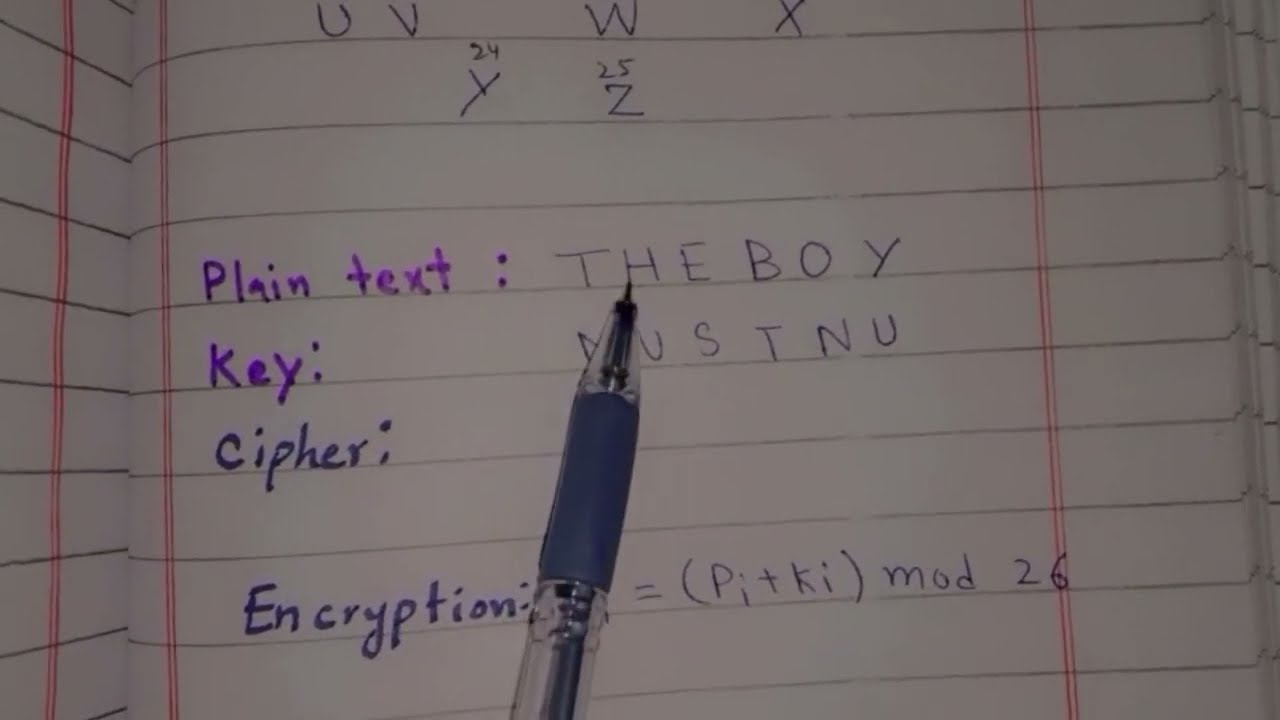 U V W X
24 25
Y Z
Plain text : T H E B O Y
Key: N U S T N U
Cipher:
Encryption: = (Pi+Ki) mod 26